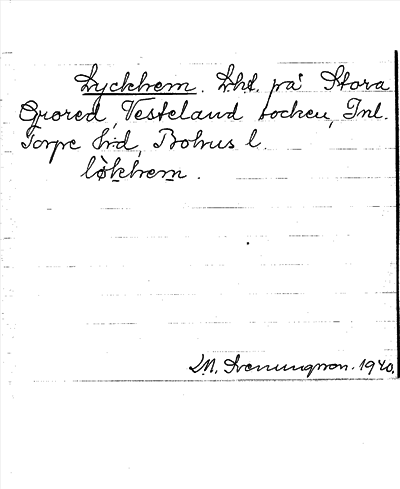 Lyckhem. Lht. på Stora
Grored, Vesteland socken, Inl.
Torpe hd, Bohus l.
lỳkhem.
M. Svenungsson. 1940.